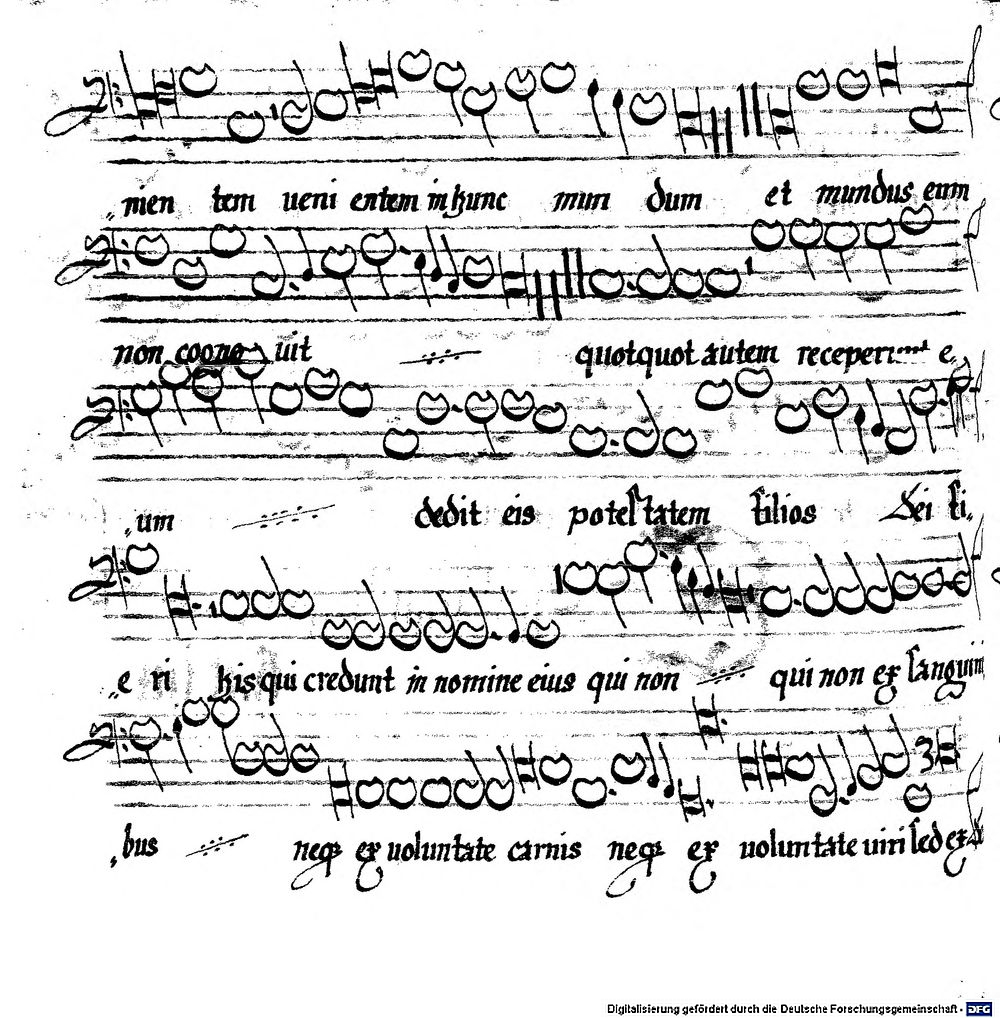 nien tem ueni entem in hunc mun dum et mundus eum
non cogno uit quotquot autem receperunt e,
um dedit eis potestatem filios Dei fi,
e ri his qui credunt in nomine eius qui non qui non ex sanguini
bus neq ex uoluntate carnis neq ex uoluntate uiri sed ex
Digitalisierung gefördert durch die Deutsche Forschungsgemeinschaft - DFG